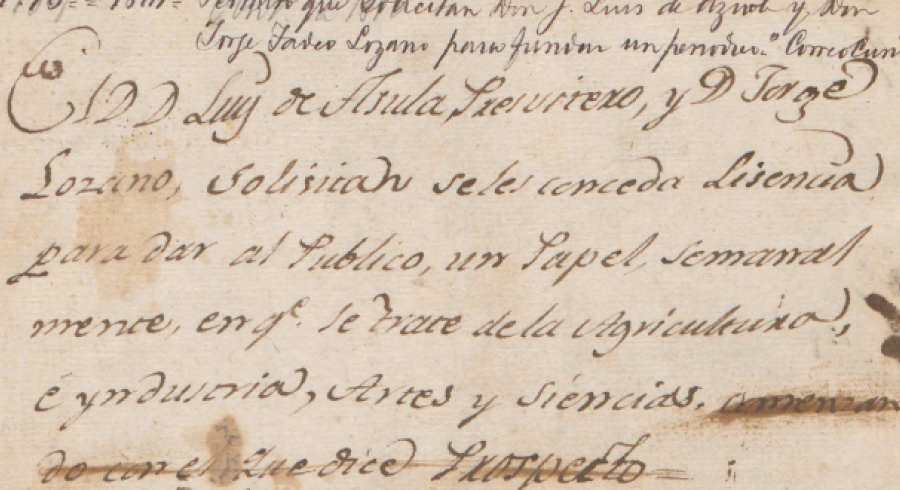 Permiso que solicitan Don J. Luis de Azuola y Don
Jorge Tadeo Lozano para fundar un periodico. Correo Curi
El D D Luis de Asula Presvitero, y D Jorge
Lozano, Solisitan seles conceda Lisencia
para dar al Publico, un Papel, semanal
mente, en qe. se trate de la Agricultura,
é yndustria, Artes y Siencias. comenzan
do con el que dice Prospecto =